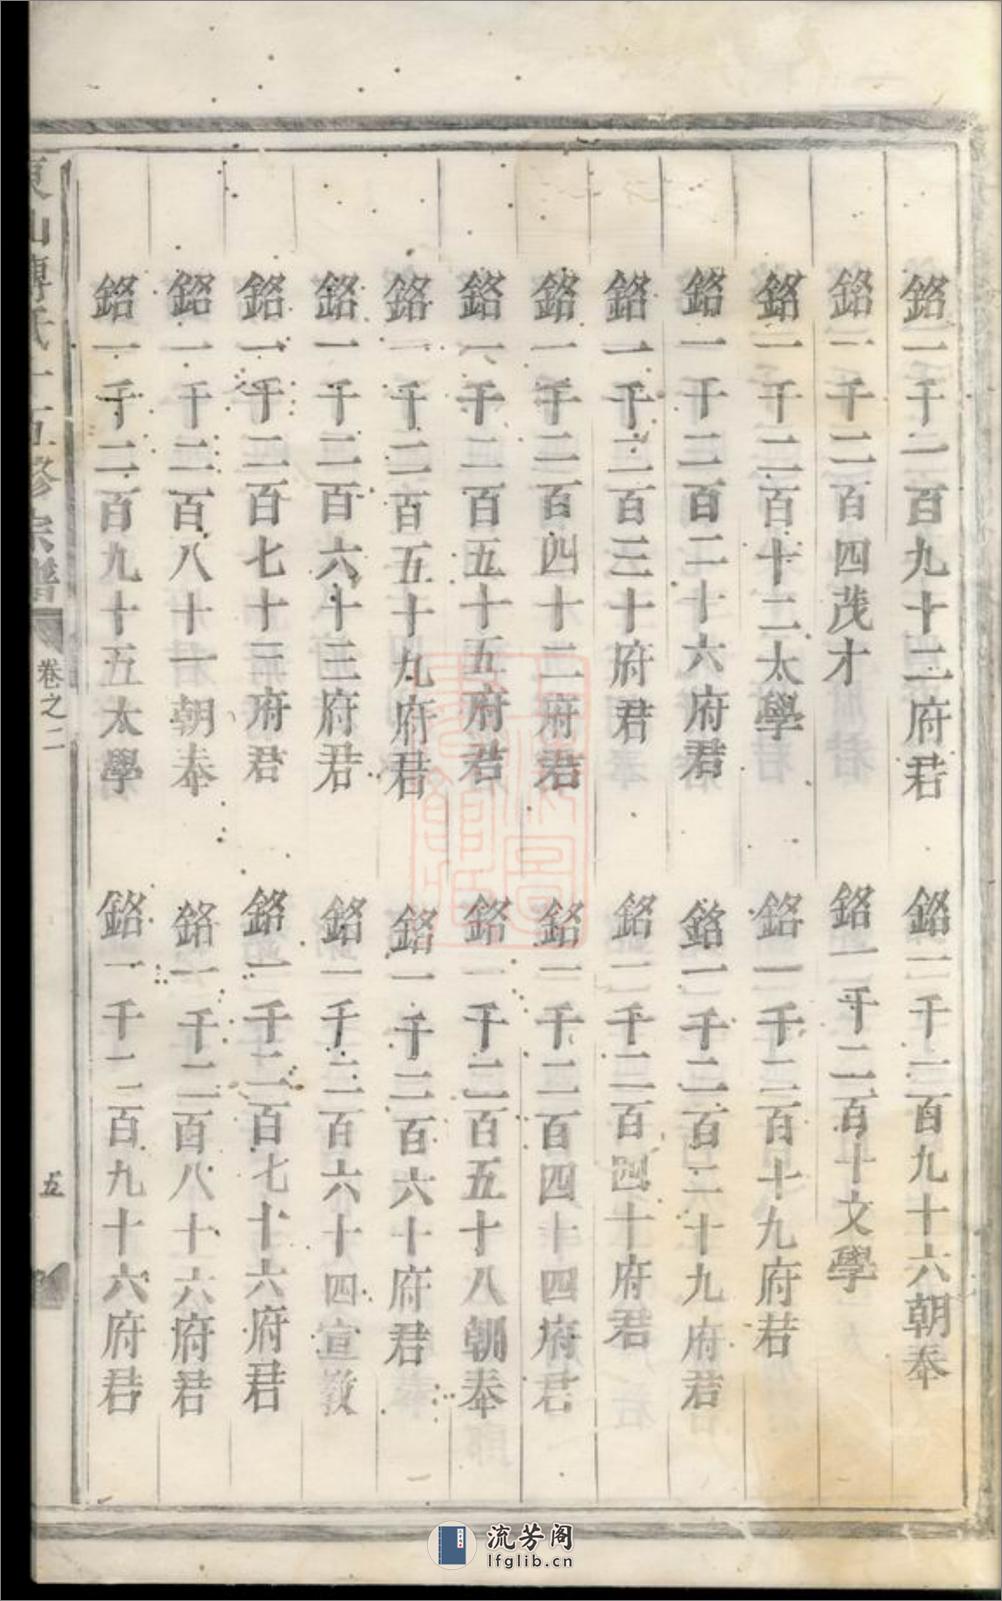 鉻一千二百九十二府君
鉻一千二百九十六朝奉
鉻一千二百四茂才
鉻一千二百十文學
鉻一千二百十二太學
鉻一千二百十九府君
鉻一千二百二十六府君
鉻一千二百二十九府君
鉻一千二百三十府君
鉻一千二百四十府君
鉻一千二百四十二府君
鉻一千二百四十四府君
鉻一千二百五十五府君
鉻一千二百五十八朝奉
鉻一千二百五十九府君
鉻一千二百六十府君
鉻一千二百六十三府君
鉻一千二百六十四宣教
鉻一千二百七十三府君
鉻一千二百七十六府君
鉻一千二百八十一朝奉
鉻一千二百八十六府君
鉻一千二百九十五太學
鉻一千二百九十六府君
東山傅氏十五修宗譜
卷之二
五
流芳阁
lfglib.cn